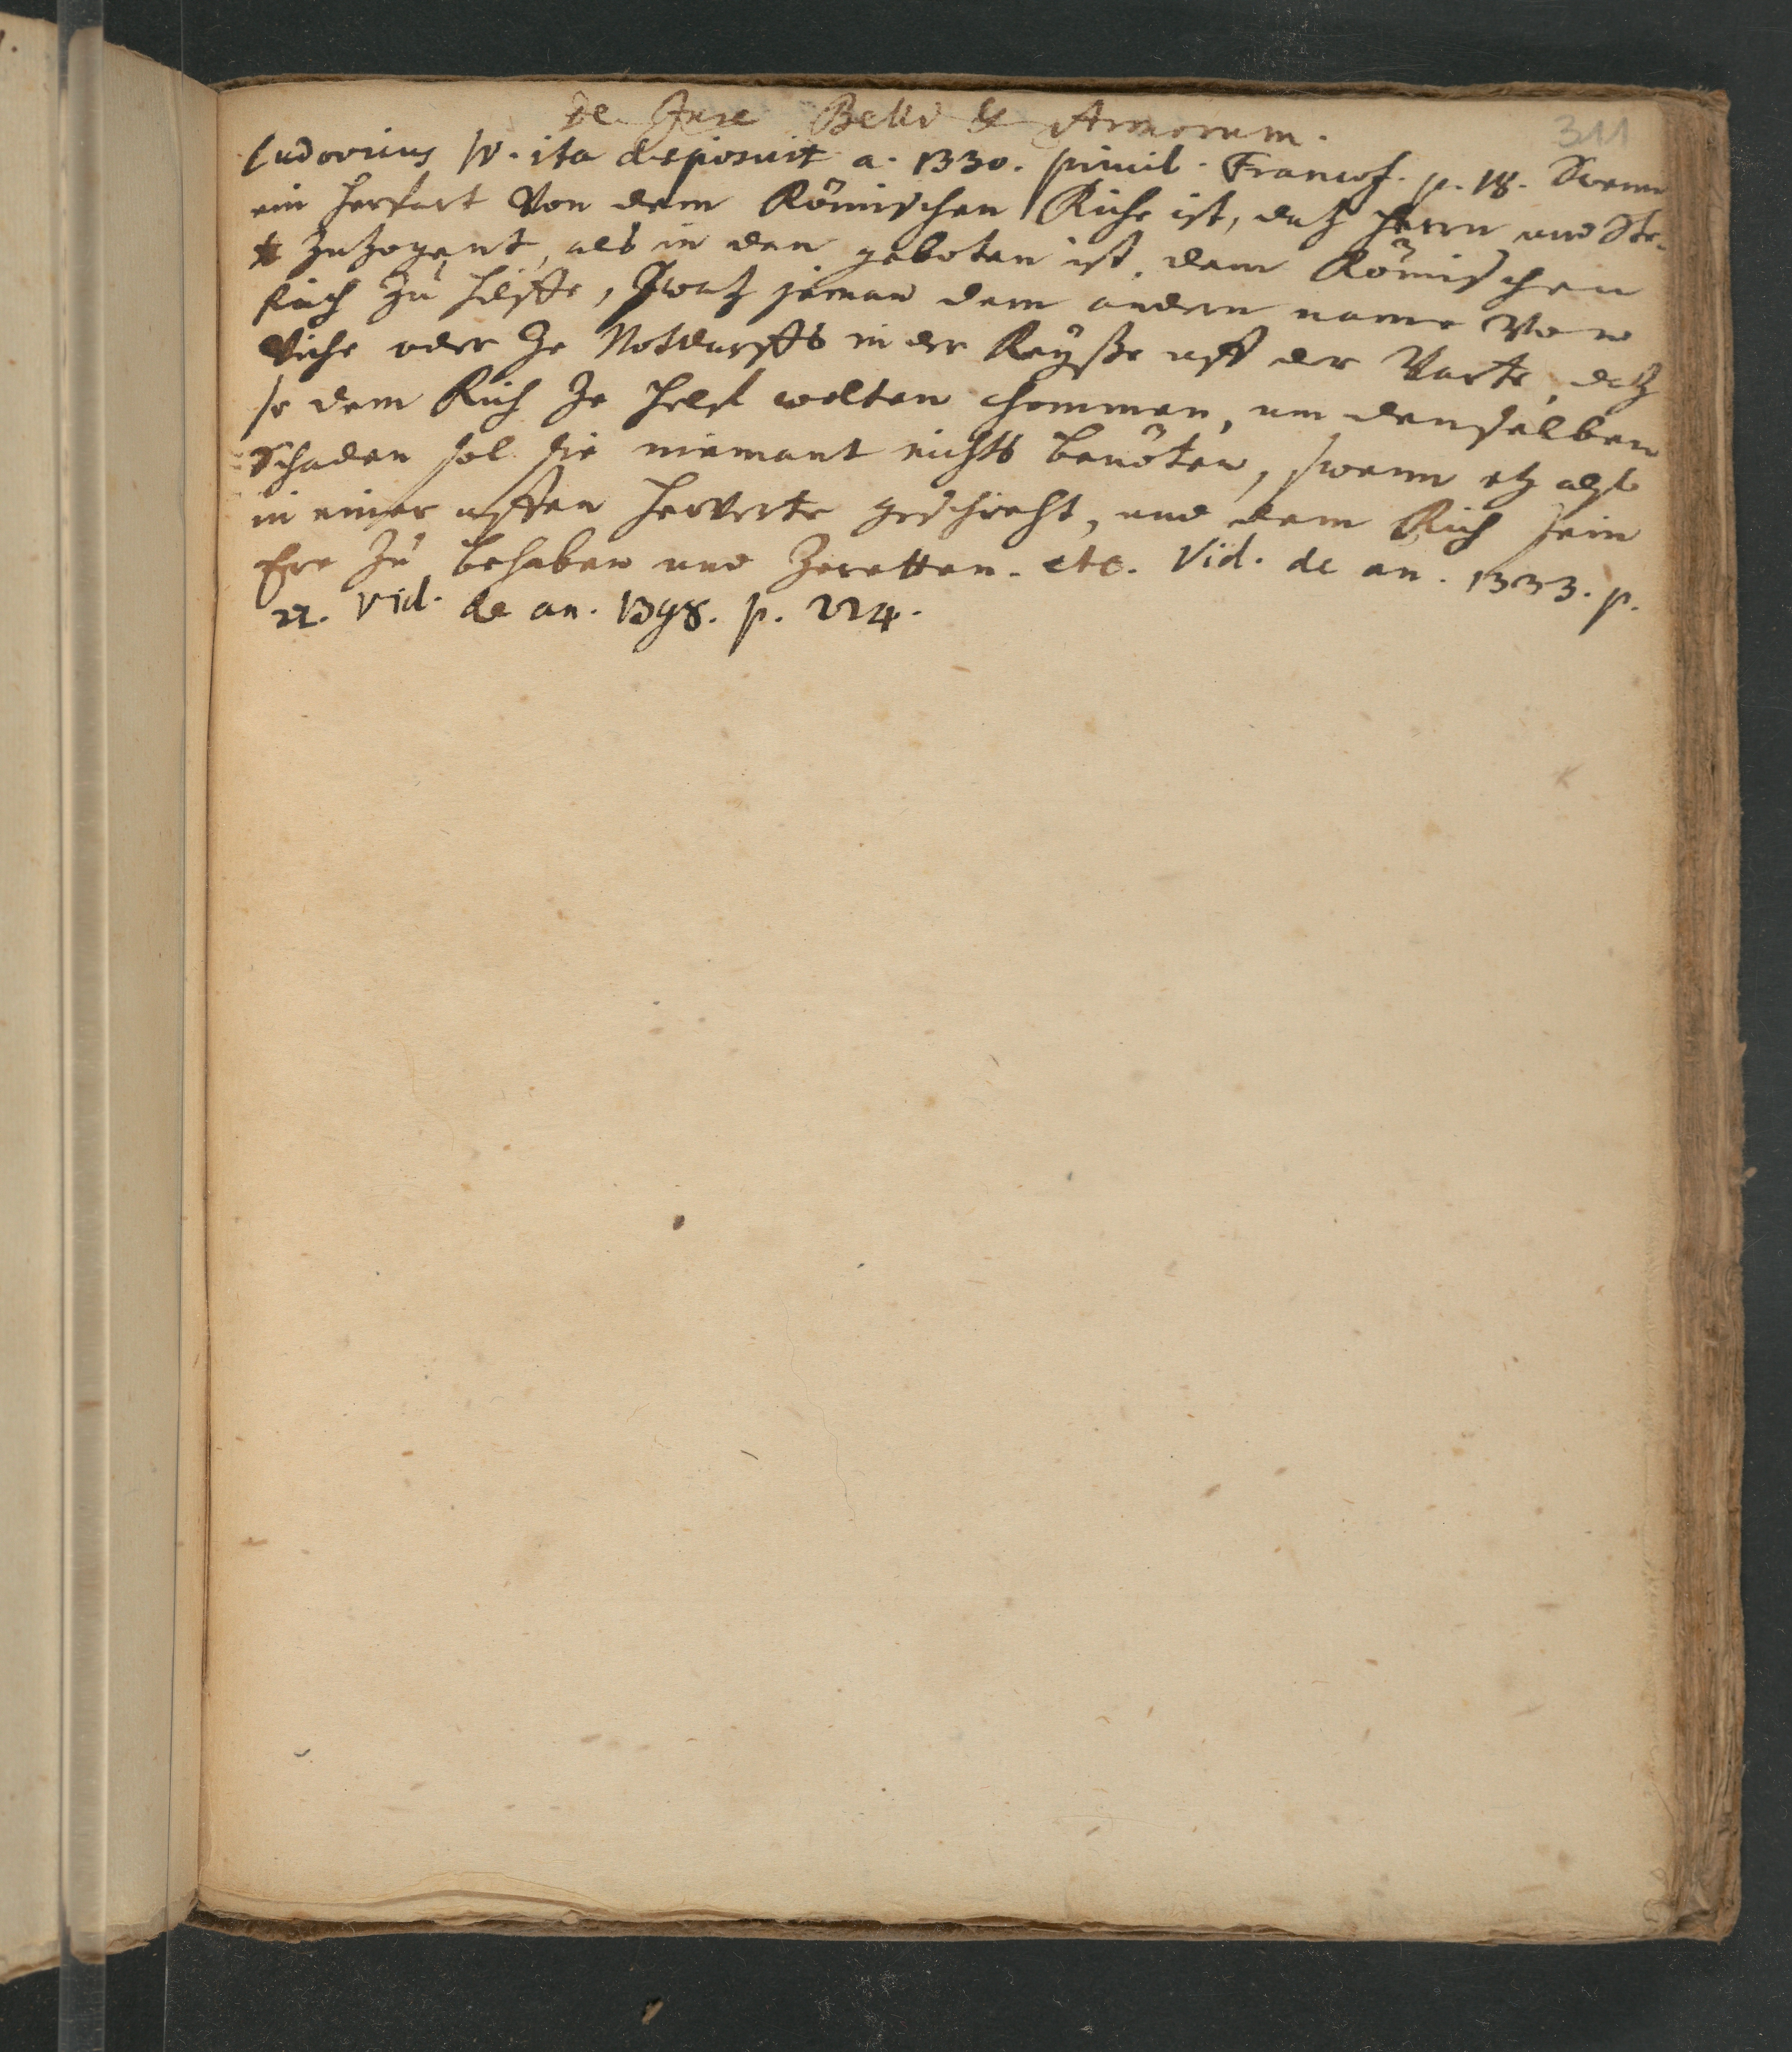 311
De Jure Belli & Armorum.
Ludovicus IV. ita disposuit a. 1330. privil. Francof. p. 18. Swenn
ein Herfart Von dem Römischen Riche ist, datz Herrn und Ste-
zuzogent, als in den geboten ist, dem Römischen
Rich zu Hilffe, Swatz jeman dem andern name Von
Viche oder ze Notdurffts in der Reysse uff der Varte, datz
se dem Rich ze Helf wolten chommen, um denselben
Schaden sol sie niemant nichts benöten, swenn etz also
in einer offen Herverte geschieht, und dem Rich sein
Ere zu behaben und zeretten. etc. Vid. de an. 1333. p.
22. Vid. de an. 1398. p. 224.